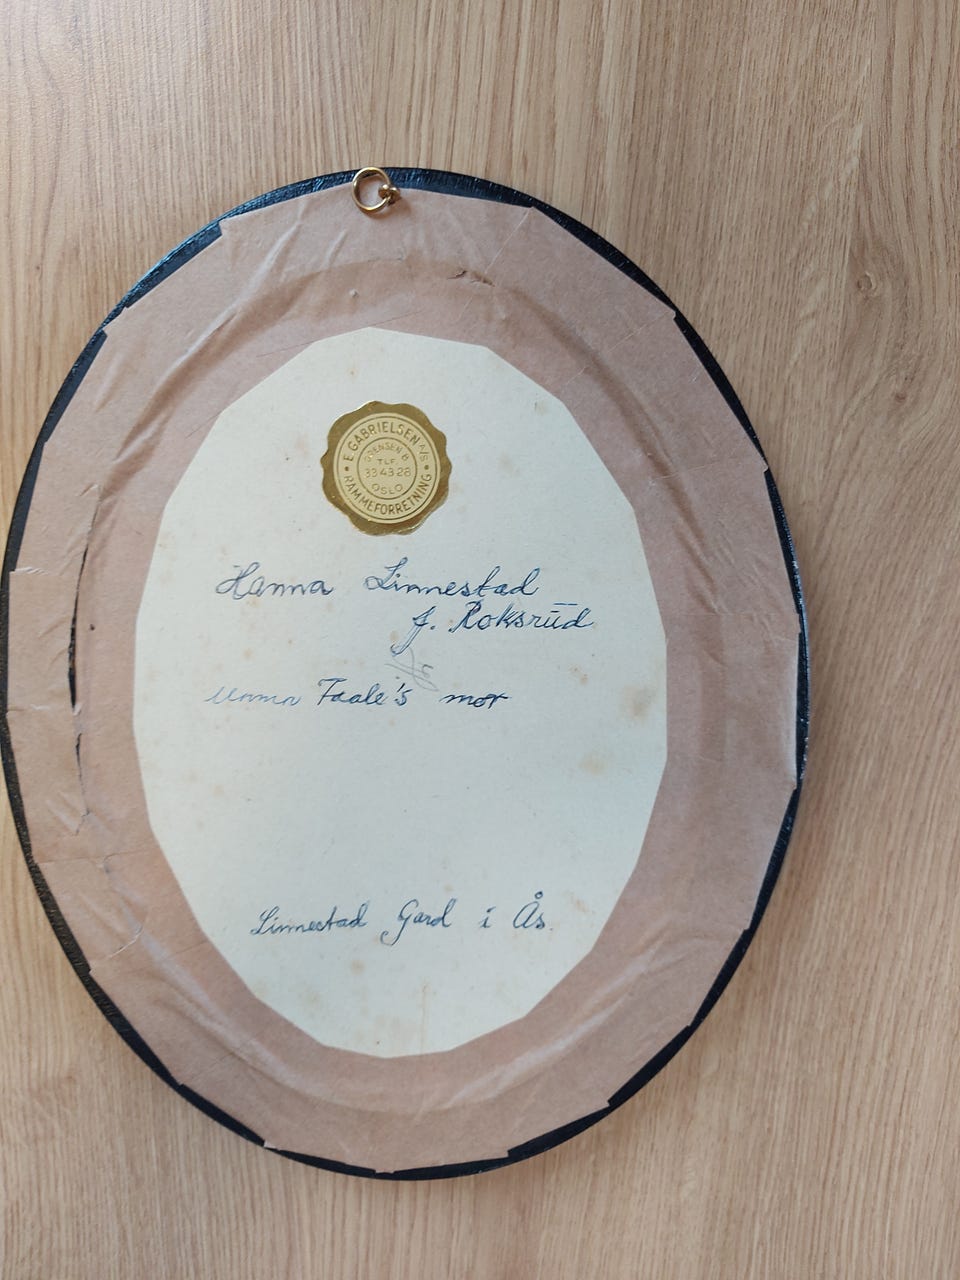 E. GABRIELSEN A/S
GRENSEN 8
TLF.
33 43 28
OSLO
RAMMEFORRETNING
Hanna Linnestad
f. Roksrud
Taale's mor
Linnestad Gard i Ås.